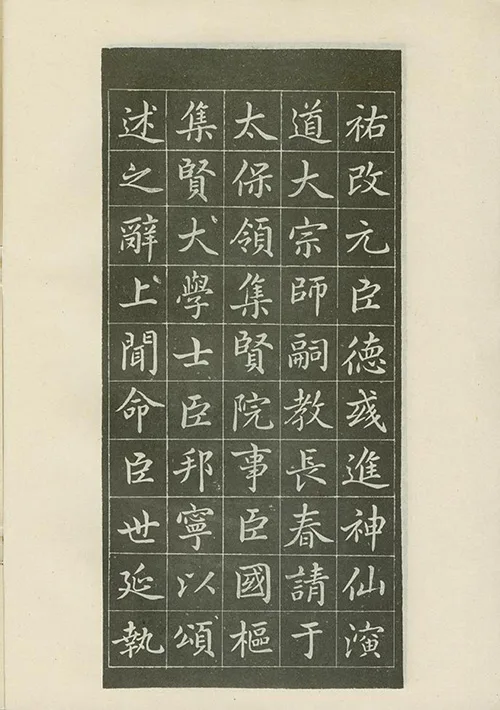 祐改元臣徳彧進神仙演
道大宗師嗣教長春請于
太保領集賢院事臣國樞
集賢大學士臣邦寧以頌
述之辭上聞命臣世延執